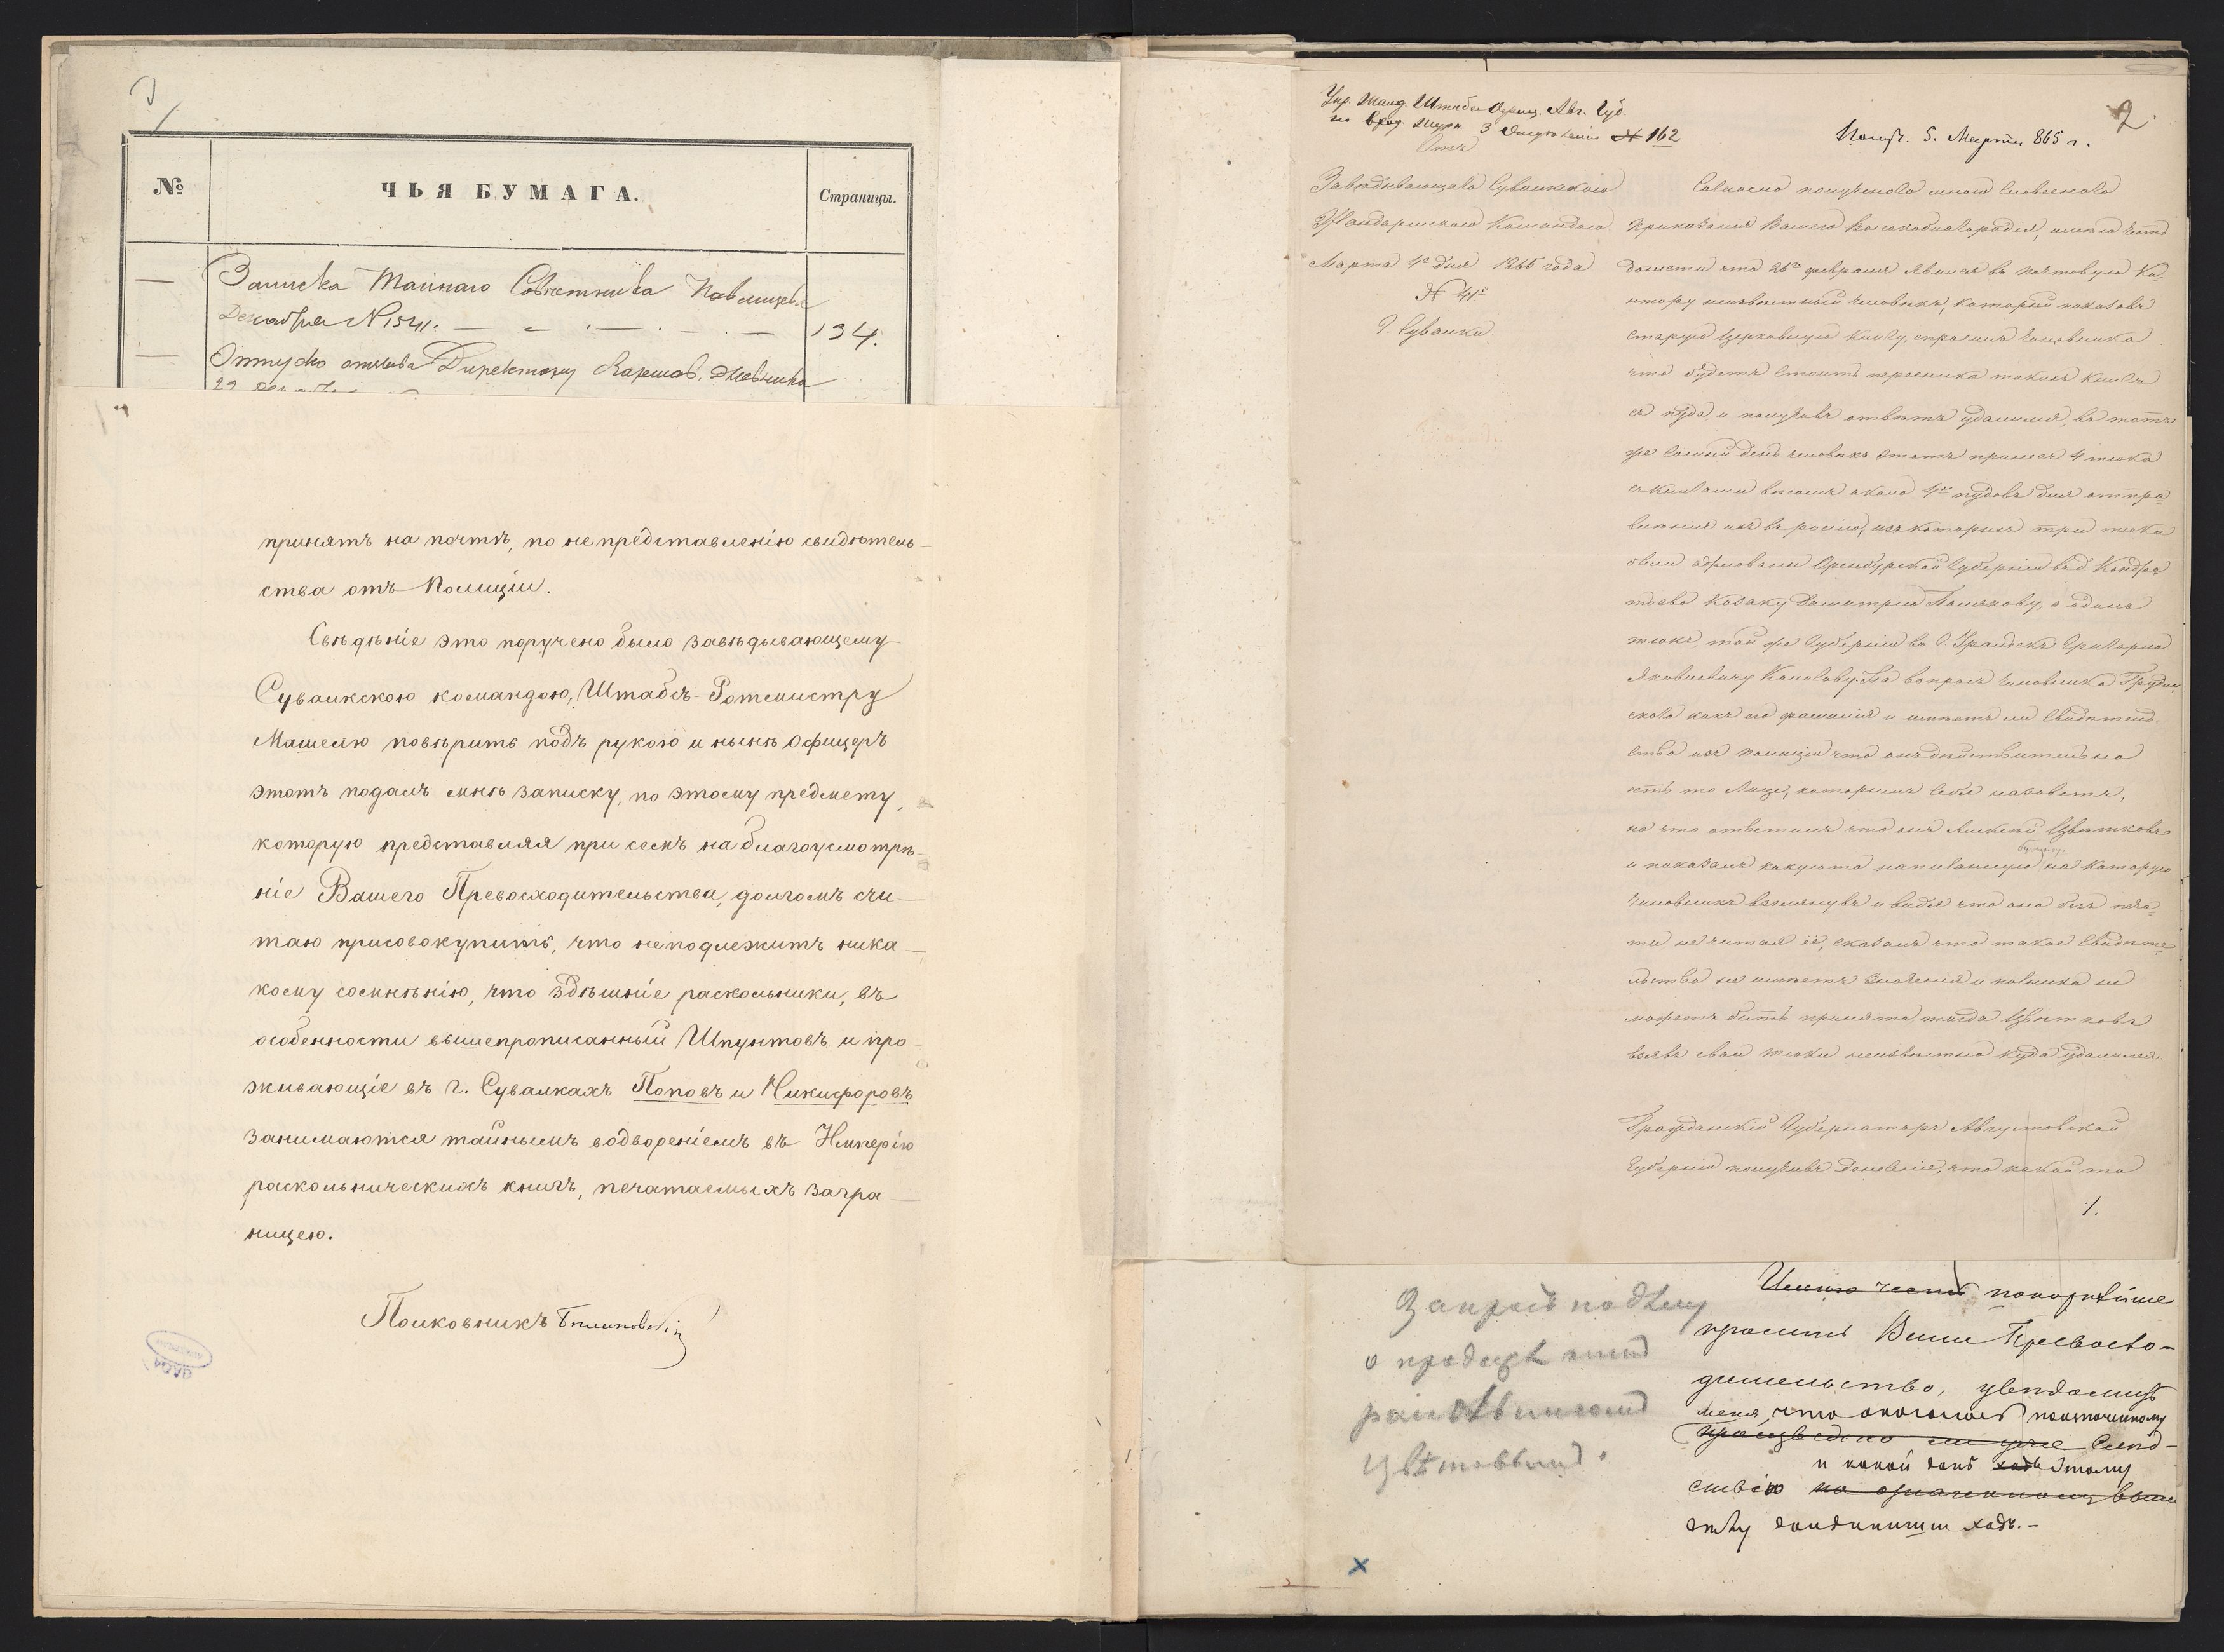 №
ЧЬЯ БУМАГА.
Страницы.
Записка Тайнаго Совѣтника Павлищева
Декабря N 1541.
134.
Отпускъ отзыва Директору
принятъ на почтѣ, по не представленію свидѣтель-
ства отъ Полиціи.
Свѣдѣніе это поручено было завѣдывающему
Сувалкскою командою, Штабсъ-Ротмистру
Машелю повѣрить подъ рукою и нынѣ офицеръ
этотъ подалъ мнѣ записку, по этому предмету,
которую представляя при семъ на благоусмотрѣ-
ніе Вашего Превосходительства, долгомъ счи-
таю присовокупить, что не подлежитъ ника-
кому сомнѣнію, что здѣшніе раскольники, въ
особенности вышепрописанный Шпунтовъ и про-
живающіе въ г. Сувалкахъ Поповъ и Никифоровъ
занимаются тайнымъ водвореніемъ въ Имперію
раскольническихъ книгъ, печатаемыхъ загра-
ницею.
Полковникъ
2.
Упр. Жанд. Штабъ Офиц. Авг. Губ.
по вход. журн. 3 N 162
Получ. 5. Марта 865 г.
Отъ
Завѣдывающаго Сувалкскою
Жандармскою Командою
Марта 4го дня 1865 года
N 41й
Г. Сувалки.
Согласно полученнаго мною словеснаго
приказанія Вашего Высокоблагородія, имѣю честь
донести что 26го февраля явился въ почтовую Ко-
нтору неизвѣстный человѣкъ, который показавъ
старую Церковную книгу, спросилъ чиновника
что будетъ стоить пересылка такихъ книгъ
съ пуда, и получивъ отвѣтъ удалился, въ тотъ
же самый день человѣкъ этотъ принесъ 4 тюка
съ книгами вѣсомъ около 4хъ пудовъ для отпра-
вленія ихъ въ росію, изъ которыхъ три тюка
были адресованы Оренбурской Губерніи въ Кондра
тьево казаку Дмитрію Полякову, а одинъ
тюкъ, той же Губерніи въ Г. Уральскъ Григорію
Яковлевичу. На вопросъ чиновника
скаго какъ его фамилія и имѣетъ ли свидѣтель-
ство изъ полиціи что онъ дѣйствительно
есть то Лице, которымъ себя назоветъ,
на что отвѣтилъ что онъ Алексѣй Цвѣтковъ
бумагу,
и показалъ какуюто написанную на которую
чиновникъ взглянувъ и видя что она безъ печа-
ти не читая её, сказалъ что такое свидѣте-
льство не имѣетъ значенія и посылка не
можетъ быть принята тогда Цвѣтковъ
взявъ свои тюки неизвѣстно куда удалился.
Гражданскій Губернаторъ Августовской
Губерніи получивъ донесеніе, что какой то
./.
Имѣю честь покорнѣйше
просить Ваше Превосхо-
дительство, увѣдомить
меня, что оказалось по
произведено ли уже Слѣд-
и какой данъ ходъ этому
ствію по означенному выше
дѣлу дальнѣйшій ходъ.-
о продажѣ книгъ
Цвѣтковымъ.
х